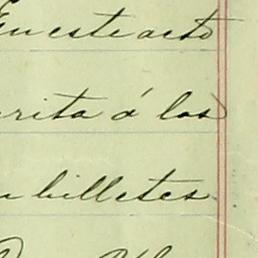 En este acto
rita á los
n billetes